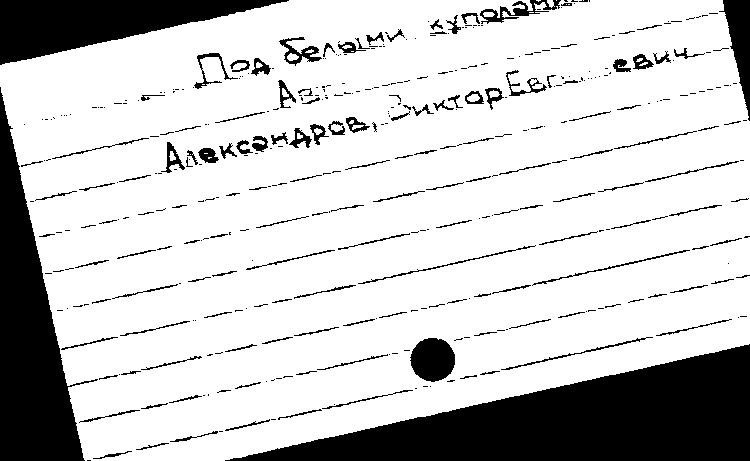 Под белыми куполами
Александров, Виктор Евгеньевич